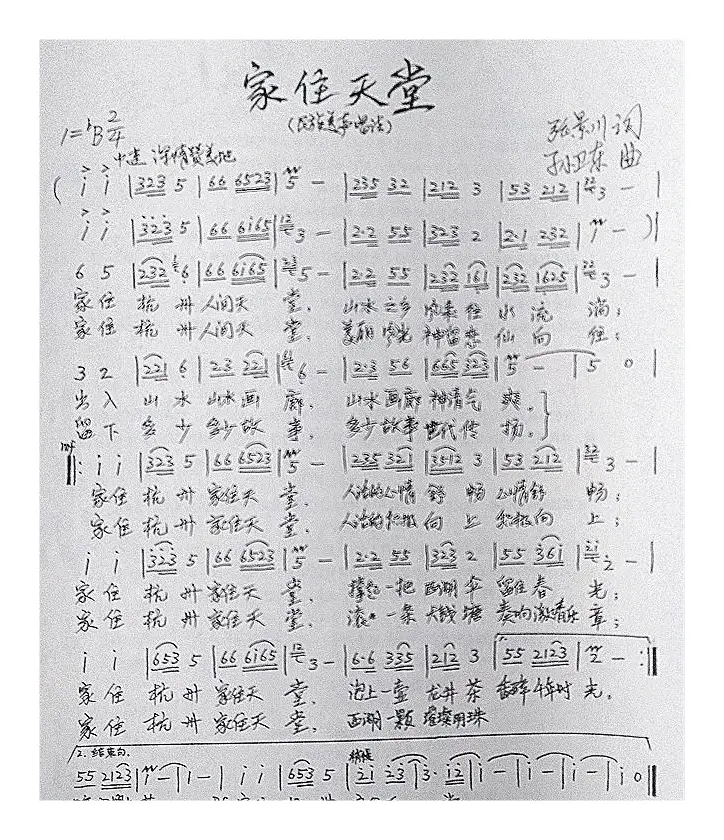 家住天堂
(民族美声唱法)
1=ᵇB 2/4
张景川 词
中速 深情赞美地
孙卫东 曲
( i i | 323 5 | 66 6523 | 5 - | 235 32 | 212 3 | 53 212 | 3 - |
i i | 323 5 | 66 6165 | 3 - | 2·2 55 | 323 2 | 2·1 232 | 1 - ) |
6 5 | 232 6 | 66 6165 | 5 - | 2·2 55 | 232 161 | 232 1625 | 3 - |
家住 杭州 人间天堂, 山水之乡 水流淌;
家住 杭州 人间天堂, 美丽 神留恋 仙向往;
3 2 | 221 6 | 23 221 | 6 - | 2·3 56 | 665 323 | 5 - | 5 0 |
出入 山水 山水画廊, 山水画廊 神清气爽。
留下 多少 多少故事, 多少故事 世代传扬。
mf
‖: i i | 323 5 | 66 6523 | 5 - | 235 321 | 3512 3 | 53 212 | 3 - |
家住 杭州 家住天堂, 人们的心情 舒畅 心情舒畅;
家住 杭州 家住天堂, 人们的 向上 向上;
i i | 323 5 | 66 6523 | 5 - | 2·2 55 | 323 2 | 55 361 | 2 - |
家住 杭州 家住天堂, 撑起一把 西湖伞 留住春光;
家住 杭州 家住天堂, 滚 一条 大钱塘 奏响激情乐章;
i i | 653 5 | 66 6165 | 3 - | 6·6 335 | 212 3 | 55 2123 | 2 - :‖
家住 杭州 家住天堂, 泡上一壶 龙井茶 香醉千年时光。
家住 杭州 家住天堂, 西湖一颗 璀璨明珠
2. 结束句.
稍慢
55 2123 | 1 - | 1 - | i i | 653 5 | 21 23 | 3· 12 | i - | i - | i - | i 0 ‖